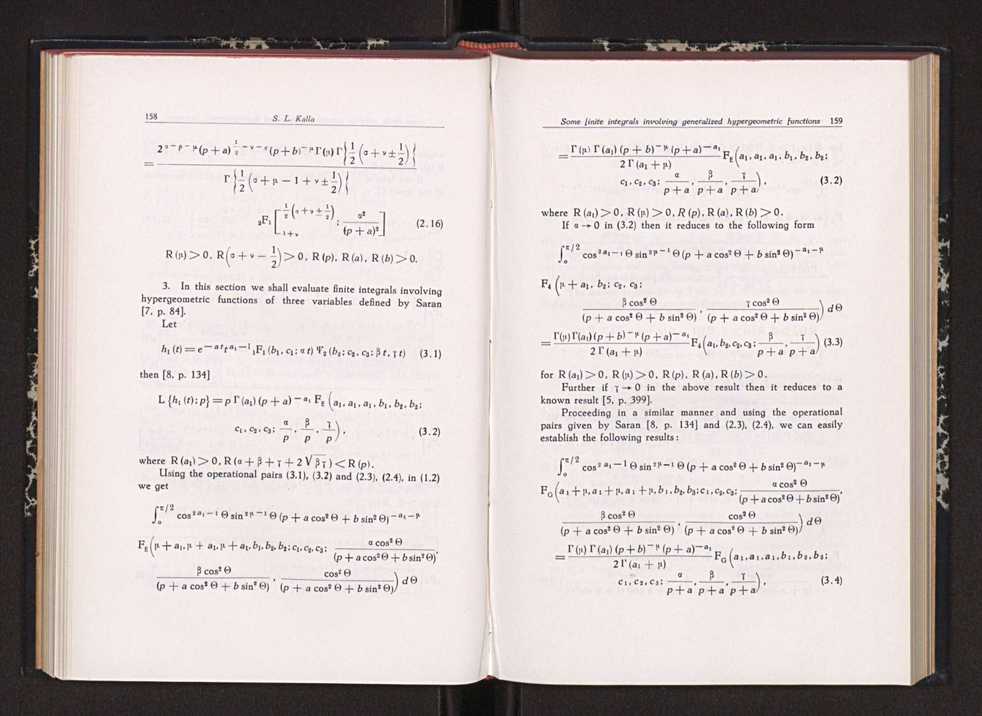 158 S. L. Kalla
= 2^{α−ρ−μ}(p + a)^{1/2−ν−α}(p + b)^{−μ} Γ(μ) Γ{1/2 (α + ν ± 1/2)} / Γ{1/2 (α + μ − 1 + ν ± 1/2)}
₂F₁ [ 1/2 (α + ν ± 1/2) ; 1 + ν ; α² / (p + a)² ] (2.16)
R (μ) > 0, R(α + ν − 1/2) > 0, R (p), R (a), R (b) > 0.
3. In this section we shall evaluate finite integrals involving
hypergeometric functions of three variables defined by Saran
[7, p. 84].
Let
h₁ (t) = e^{−at} t^{a₁−1} ₁F₁ (b₁, c₁; α t) Ψ₂ (b₂; c₂, c₃; β t, γ t) (3.1)
then [8, p. 134]
L {h₁ (t); p} = p Γ (a₁) (p + a)^{−a₁} F_E (a₁, a₁, a₁, b₁, b₂, b₂;
c₁, c₂, c₃; α/p, β/p, γ/p), (3.2)
where R (a₁) > 0, R (α + β + γ + 2 √βγ) < R (p).
Using the operational pairs (3.1), (3.2) and (2.3), (2.4), in (1.2)
we get
∫₀^{π/2} cos^{2a₁−1} Θ sin^{2μ−1} Θ (p + a cos² Θ + b sin² Θ)^{−a₁−μ}
F_E (μ + a₁, μ + a₁, μ + a₁, b₁, b₂, b₂; c₁, c₂, c₃; α cos² Θ / (p + a cos² Θ + b sin² Θ),
β cos² Θ / (p + a cos² Θ + b sin² Θ), cos² Θ / (p + a cos² Θ + b sin² Θ)) d Θ
Some finite integrals involving generalized hypergeometric functions 159
= Γ (μ) Γ (a₁) (p + b)^{−μ} (p + a)^{−a₁} / 2 Γ (a₁ + μ) F_E (a₁, a₁, a₁, b₁, b₂, b₂;
c₁, c₂, c₃; α/(p + a), β/(p + a), γ/(p + a)), (3.2)
where R (a₁) > 0, R (μ) > 0, R (p), R (a), R (b) > 0.
If α → 0 in (3.2) then it reduces to the following form
∫₀^{π/2} cos^{2a₁−1} Θ sin^{2μ−1} Θ (p + a cos² Θ + b sin² Θ)^{−a₁−μ}
F₄ (μ + a₁, b₂; c₂, c₃;
β cos² Θ / (p + a cos² Θ + b sin² Θ), γ cos² Θ / (p + a cos² Θ + b sin² Θ)) d Θ
= Γ(μ) Γ(a₁) (p + b)^{−μ} (p + a)^{−a₁} / 2 Γ (a₁ + μ) F₄ (a₁, b₂, c₂, c₃; β/(p + a), γ/(p + a)) (3.3)
for R (a₁) > 0, R (μ) > 0, R (p), R (a), R (b) > 0.
Further if γ → 0 in the above result then it reduces to a
known result [5, p. 399].
Proceeding in a similar manner and using the operational
pairs given by Saran [8, p. 134] and (2.3), (2.4), we can easily
establish the following results :
∫₀^{π/2} cos^{2a₁−1} Θ sin^{2μ−1} Θ (p + a cos² Θ + b sin² Θ)^{−a₁−μ}
F_G (a₁ + μ, a₁ + μ, a₁ + μ, b₁, b₂, b₃; c₁, c₂, c₃; α cos² Θ / (p + a cos² Θ + b sin² Θ),
β cos² Θ / (p + a cos² Θ + b sin² Θ), cos² Θ / (p + a cos² Θ + b sin² Θ)) d Θ
= Γ (μ) Γ (a₁) (p + b)^{−μ} (p + a)^{−a₁} / 2 Γ (a₁ + μ) F_G (a₁, a₁, a₁, b₁, b₂, b₃;
c₁, c₂, c₃; α/(p + a), β/(p + a), γ/(p + a)), (3.4)